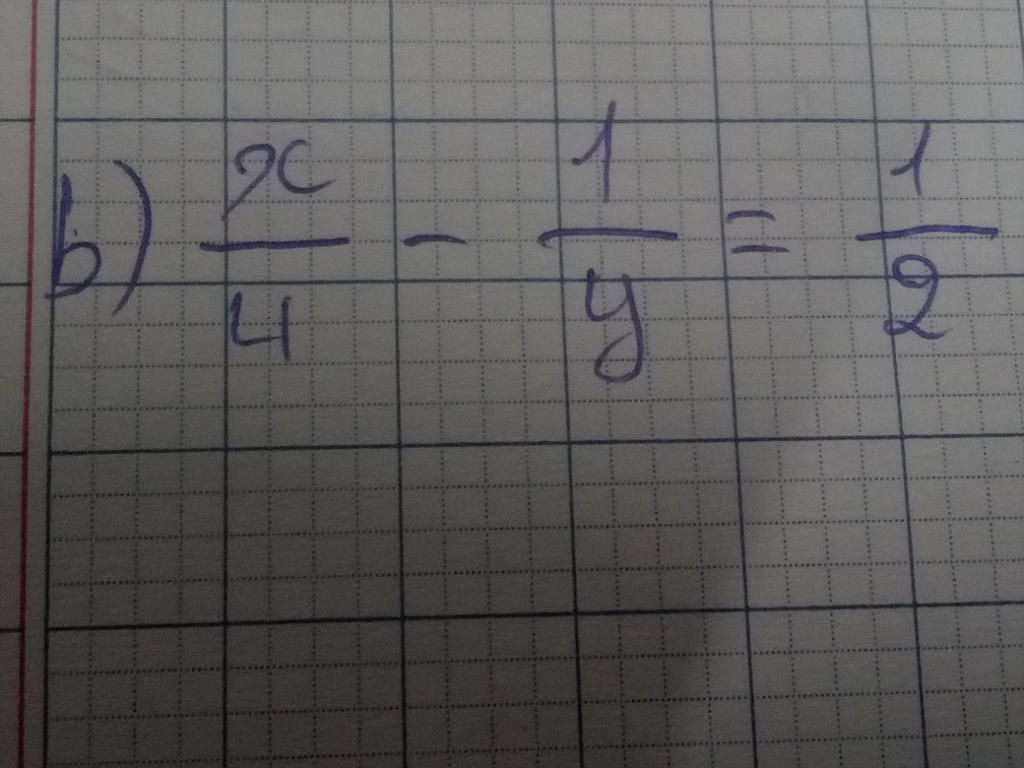 b) x/4 - 1/y = 1/2